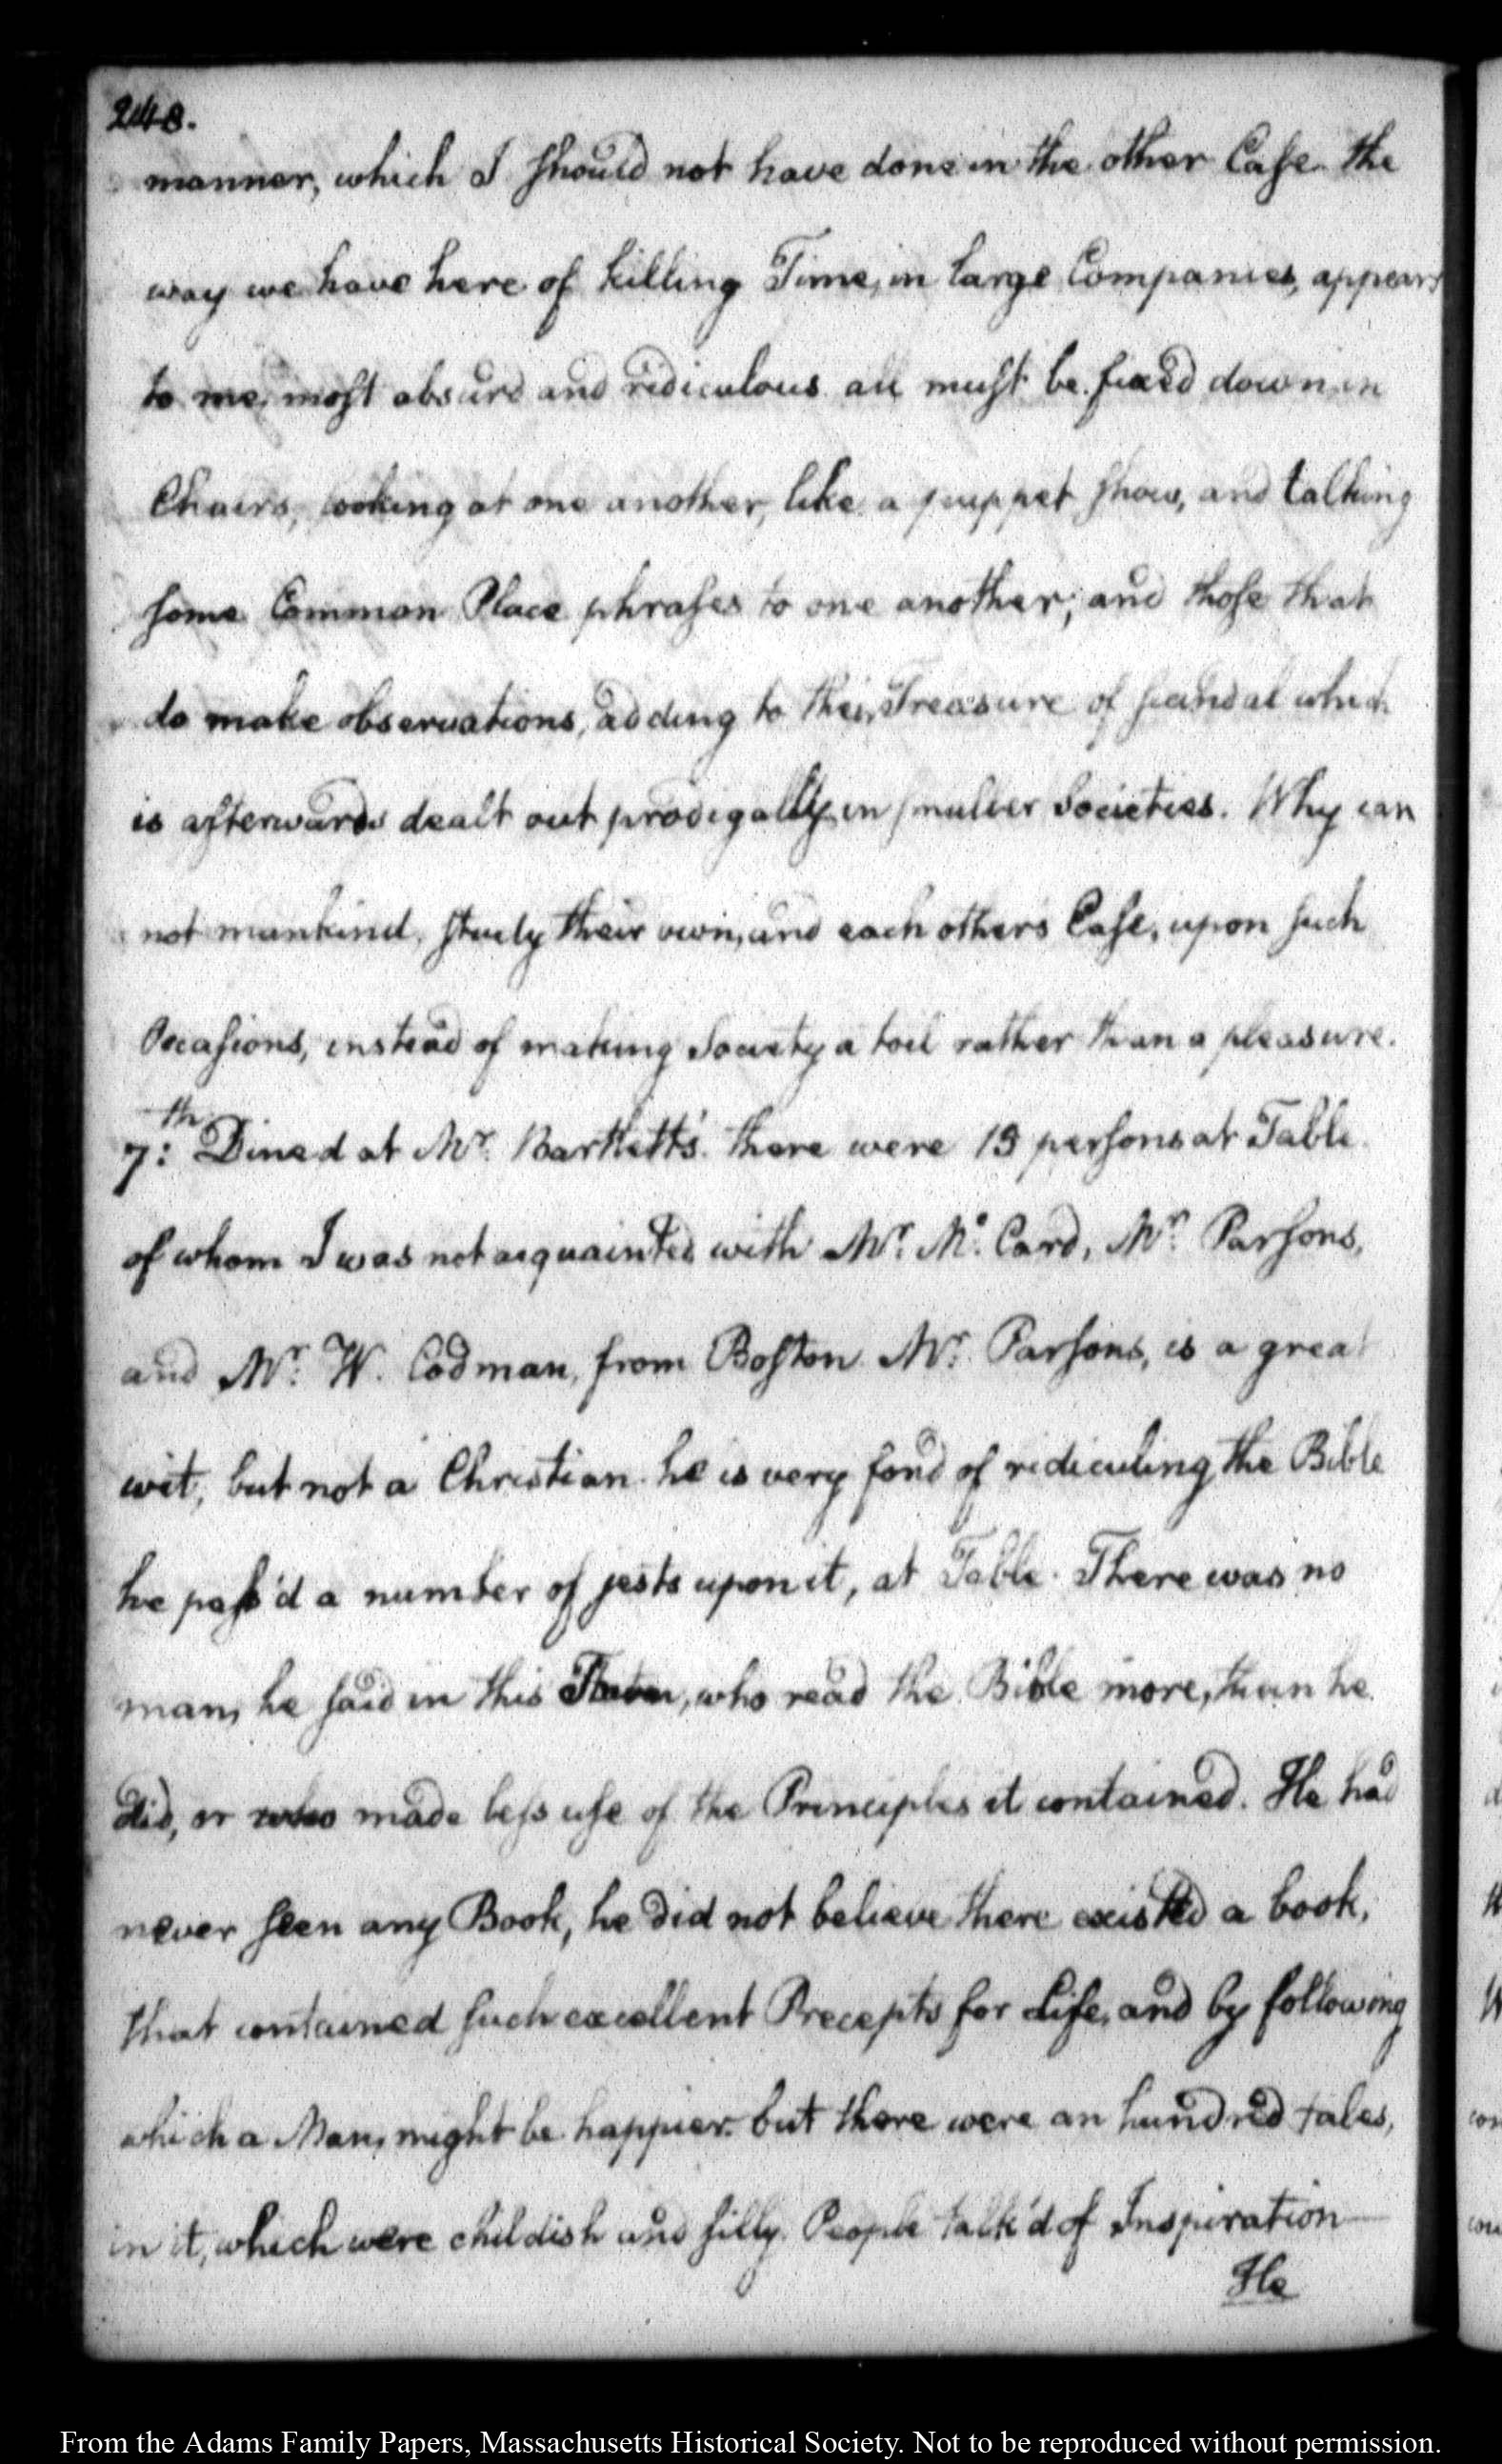 248.
manner, which I should not have done in the other Case. the
way we have here of killing Time, in large Companies, appears
to me, most absurd and ridiculous. all must be fixed down in
Chairs, looking at one another, like a puppet show, and talking
some Common Place phrases to one another; and those that
do make observations, adding to their Treasure of scandal which
is afterwards dealt out prodigally in smaller Societies. Why can
not mankind, study their own, and each others Ease, upon such
Occasions, instead of making Society a toil rather than a pleasure.
7:th Dined at Mr. Bartlett's. there were 13 persons at Table
of whom I was not acquainted with Mr. Mc. Card, Mr. Parsons,
and Mr. W. Codman, from Boston. Mr. Parsons, is a great
wit, but not a Christian. he is very fond of ridiculing the Bible
he pass'd a number of jests upon it, at Table. There was no
man, he said in this Town, who read the Bible more, than he
did, or who made less use of the Principles it contained. He had
never seen any Book, he did not believe there existed a book,
that contained such excellent Precepts for Life, and by following
which a Man, might be happier. but there were an hundred tales,
in it, which were childish and silly. People talk'd of Inspiration
He
From the Adams Family Papers, Massachusetts Historical Society. Not to be reproduced without permission.